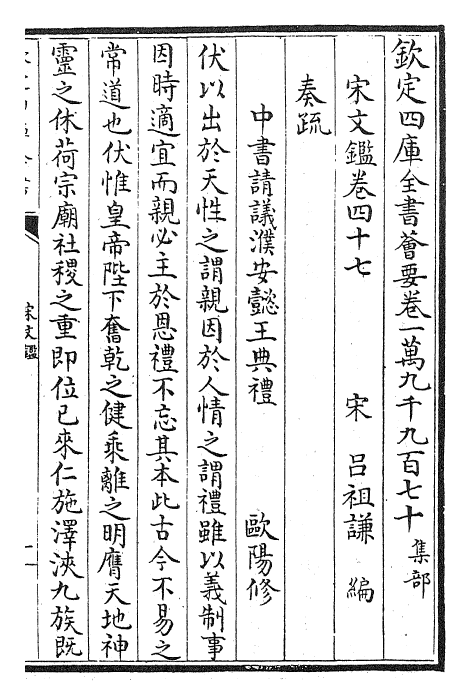 欽定四庫全書薈要卷一萬九千九百七十 集部
宋文鑑卷四十七 宋 呂祖謙 編
奏疏
中書請議濮安懿王典禮 歐陽修
伏以出於天性之謂親因於人情之謂禮雖以義制事
因時適宜而親必主於恩禮不忘其本此古今不易之
常道也伏惟皇帝陛下奮乾之健乘離之明膺天地神
靈之休荷宗廟社稷之重即位已來仁施澤浹九族既
宋文鑑